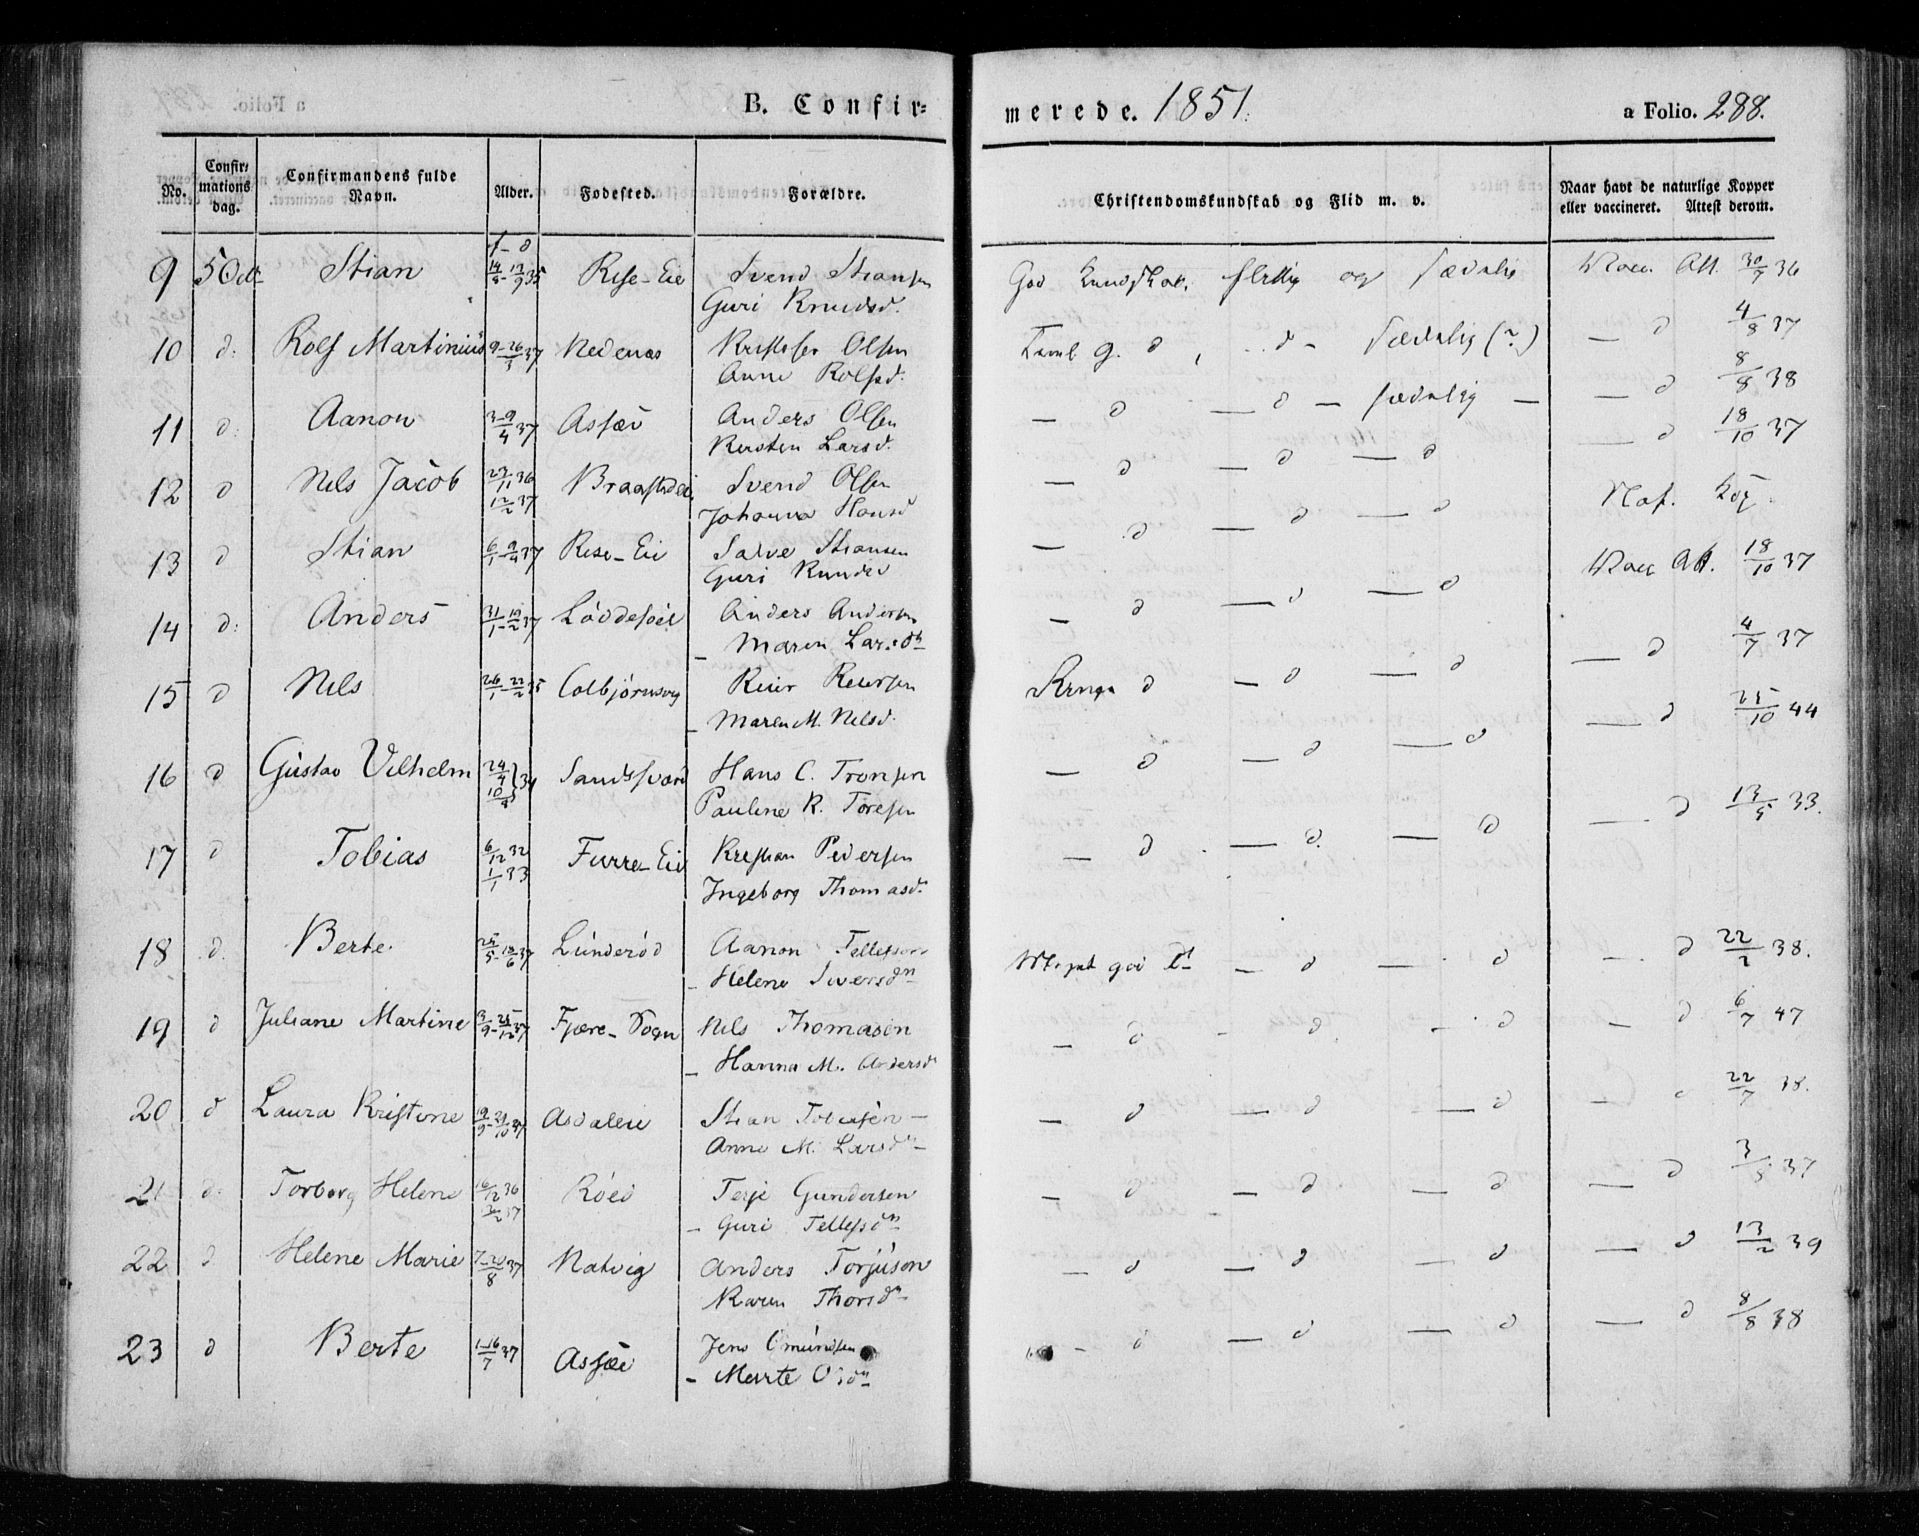 B. Confirmerede. 1851. a Folio. 288.
No. Confirmations dag. Confirmandens fulde Navn. Alder. Fødested. Forældre. Christendomskundskab og Flid m. v. Naar havt de naturlige Kopper eller vaccineret. Attest derom.
9 5 Oct Stian 35 Rise-Eie Svend Stiansen God Kundskab, flittig og sædelig Vacc. Att. 30/7 36
Guri Knudsd.
10 d: Rolf Martinius 9-26/3 37 Nedenæs Kristofer Olsen g. d d sædelig (?) — d 4/8 37
Anne Rolfsd.
11 d: Aanon 3-9/4 37 Assæv Anders Olsen — d — d — sædelig — — d 8/8 38
Kersten Larsd.
12 d Nels Jacob 36 Svend Olsen — d — d — d — d 18/10 37
12/2 37 Johanna Hansd
13 d Stian 6/1-9/4 37 Rese-Eie Salve Stiansen — d — d — d Nat. Kop.
Guri
14 d: Anders 31/1-19/2 37 Løddesøel Anders Andersen — d — d — d Vacc Att. 18/10 37
— Maren Larsdn
15 d Nels 26/1-22/2 35 Colbjørnsvig Reier Reiersen d — d — d — d 4/7 37
— Maren M. Nelsd.
16 d Gustav Vilhelm 24/4 10/8 34 Hans C. Tronsen — d — d — d — d 25/10 44
Pauline R. Toresen
17 d Tobias 6/12 32 Furre-Eie Kristian Pedersen — d — d. — d — d 13/5 33.
1/1 33 Ingeborg Thomasd.
18 d. Berte. 25/5-18/6 37 Lunderød Aanon Tellefsen god — d — d — d 22/2 38.
— Helene Siversdn
19 d Juliane Martine 3/9-25/12 37 Fjære-Sogn Nels Thomasen — d — d — d — d 6/7 47
— Hanna M. Andersd
20 d Laura Kristine 19/9-21/10 37 Asdaleie Stian Tobiasen — — d — d — d — d 22/7 38.
Anne M. Larsdn
21 d: Torborg Helene 16/12 36 Røed Terje Gundersen — d — d — d — d 3/8 37
2/2 37 — Guri Tellefsdn
22 d Helene Marie 7-20/8 37 Natvig Anders Torjusen — d — d — d — d 13/2 39
Karen Thorsdn
23 d Berte 1-16/7 37 Assæv Jens Omundsen — d — d — d — d 8/8 38
— Marte